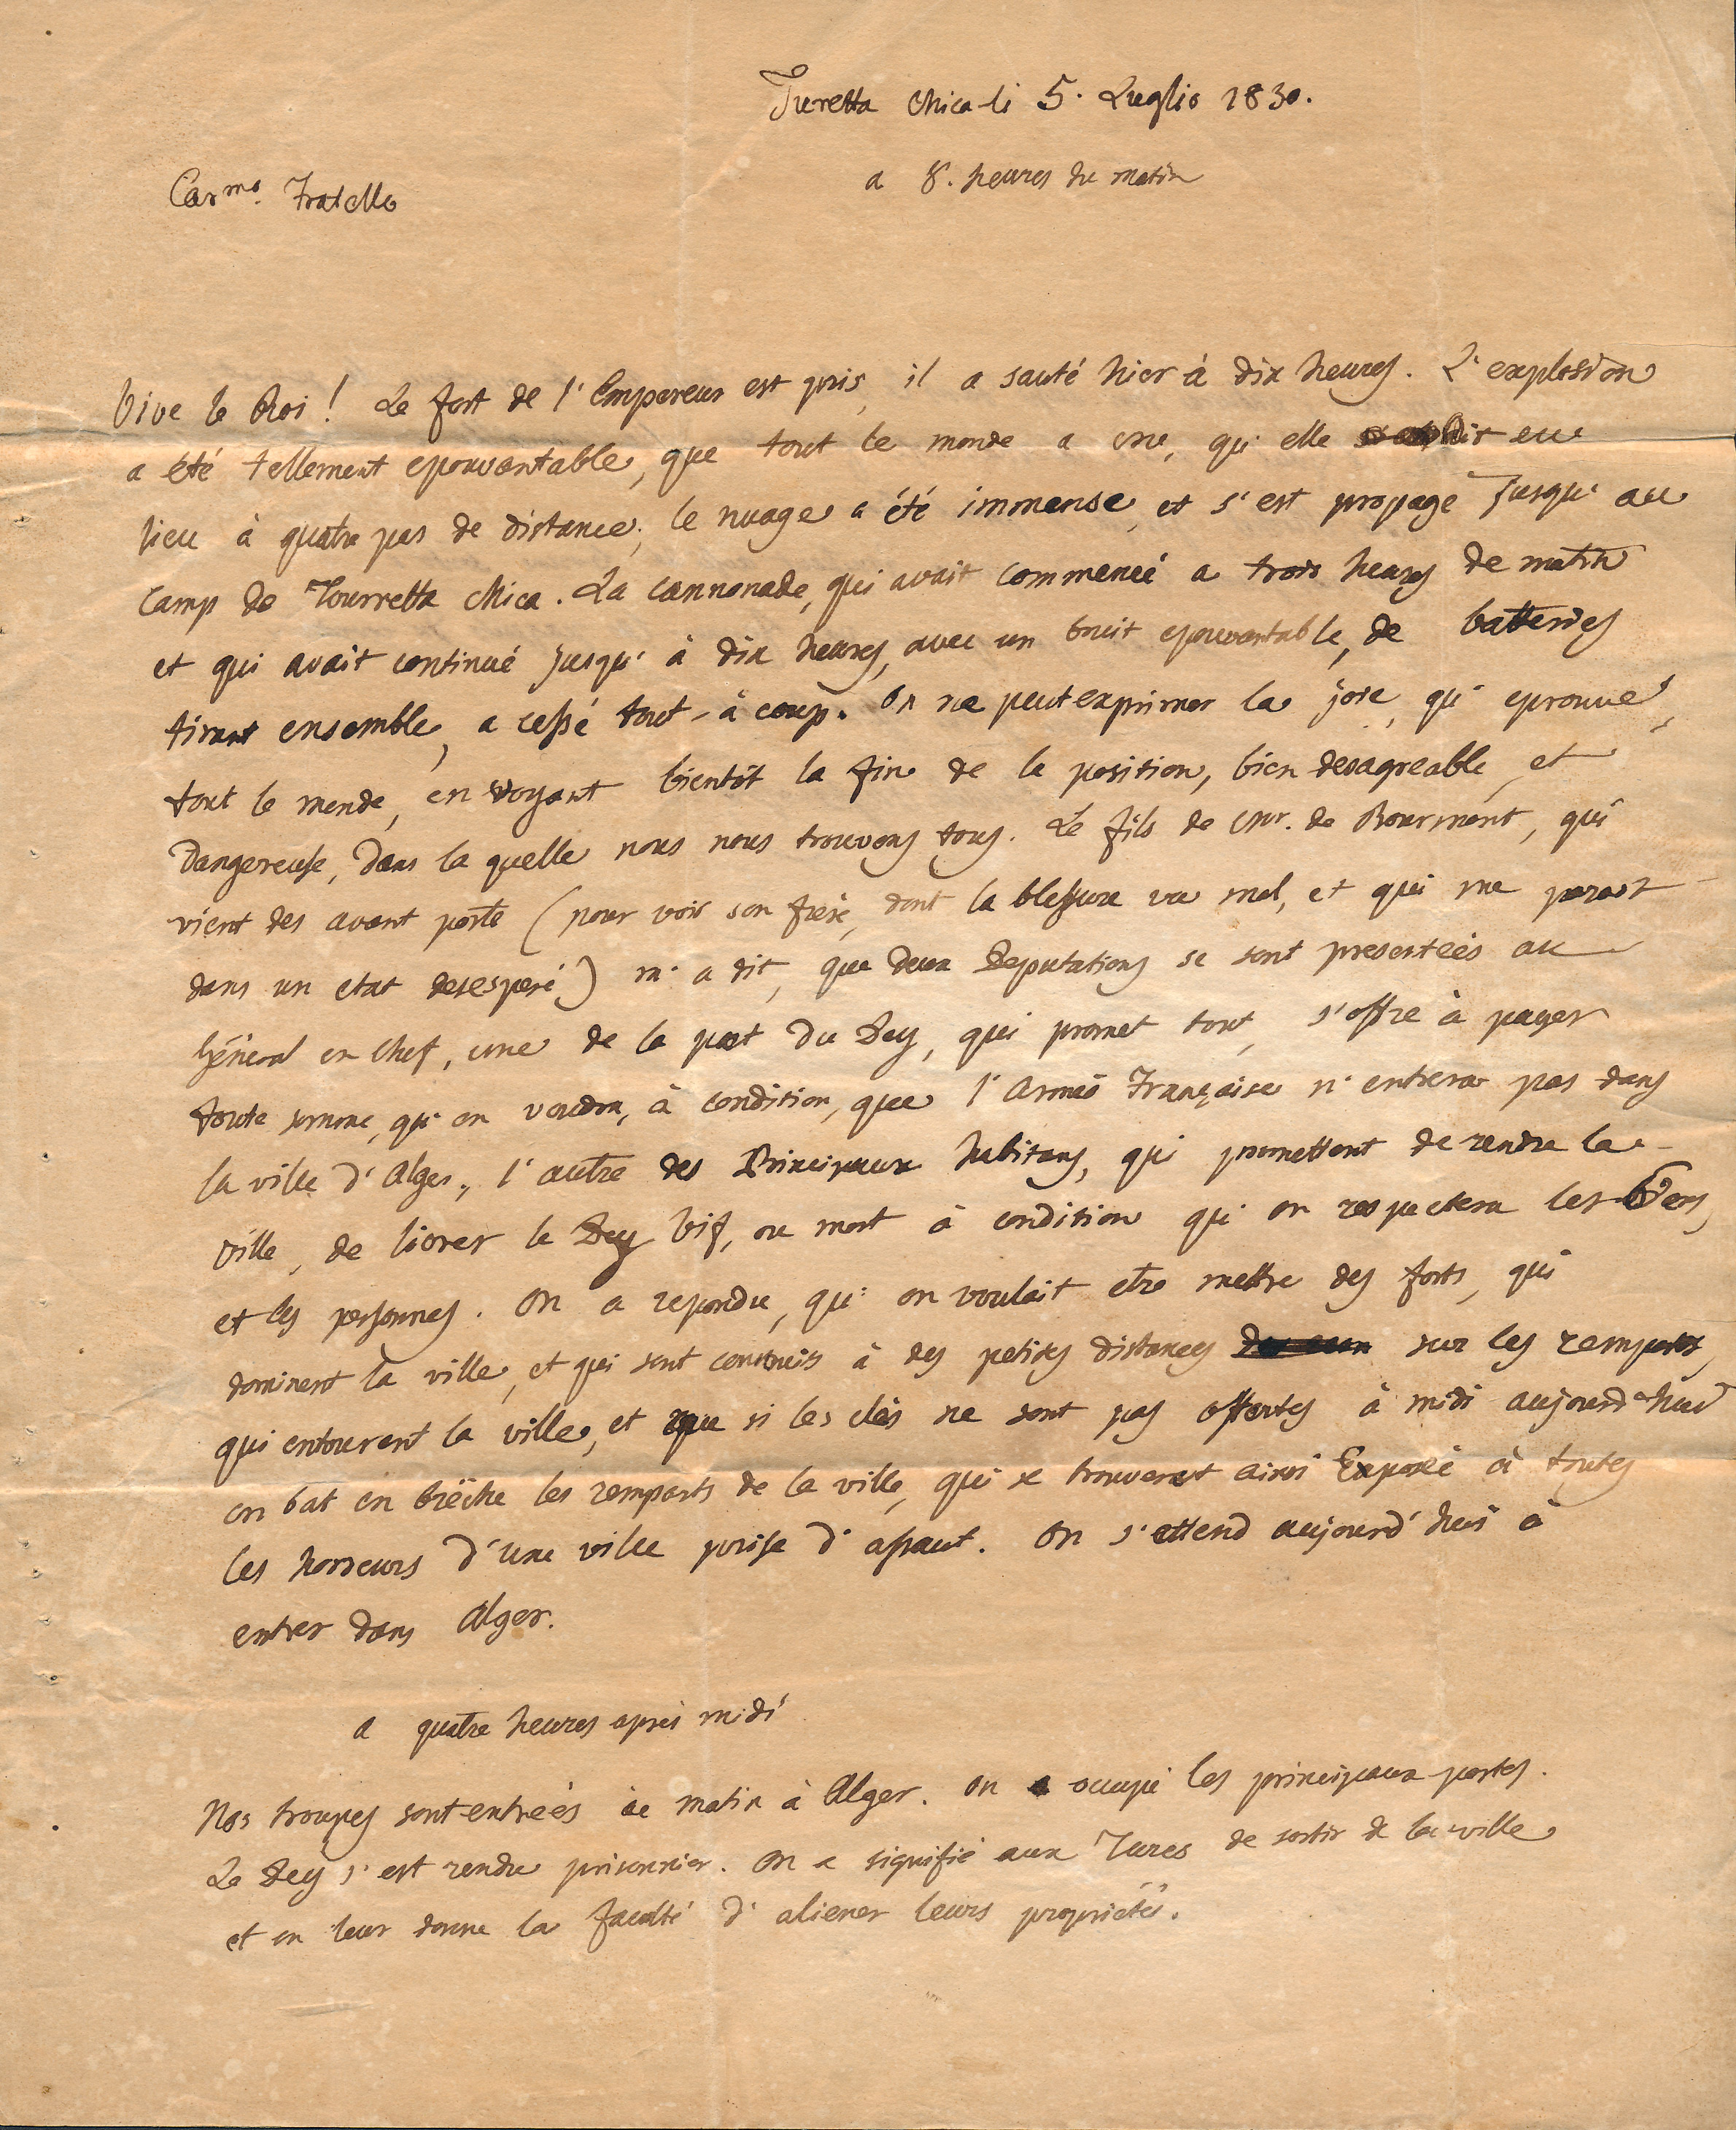 Turetta Chica li 5. Luglio 1830.
a 8. heures du matin
Carmo. Fratello
Vive le Roi ! Le fort de l'Empereur est pris, il a sauté hier à dix heures. L'explosion
a été tellement epouvantable, que tout le monde a cru, qu'elle ait eu
lieu à quatre pas de distance; le nuage a été immense, et s'est propagé jusqu'au
Camp de Tourretta Chica. La cannonade, qui avait commencé a trois heures de matin
et qui avait continué jusqu'à dix heures, avec un bruit epouvantable, de batteries
tirant ensemble, a cessé tout-à coup. On ne peut exprimer la joie, qu'eprouve,
tout le monde, en voyant bientôt la fin de la position, bien desagreable, et
dangereuse, dans la quelle nous nous trouvons tous. Le fils de Mr. de Bourmont, qui
vient des avant poste (pour voir son frere, dont la blessure va mal, et qui me parait
dans un etat desesperé) m'a dit, que deux Deputations se sont presentées au
Géneral en Chef, une de la part du Dey, qui promet tout, s'offre à payer
toute somme, qu'on voudra, à condition, que l'Armée Française n'entrera pas dans
la ville d'Alger, l'autre des Principaux habitans, qui promettent de rendre la
ville, de livrer le Dey vif, ou mort à condition qu'on respectera les biens,
et les personnes. On a repondu, qu'on voulait etre mettre des forts, qui
dominent la ville, et qui sont construits à des petites distances sur les remparts,
qui entourent la ville, et que si les clés ne sont pas offertes à midi aujourd'hui
on bat en brêche les remparts de la ville, qui se trouverat ainsi Exposée à toutes
les horreurs d'une ville prise d'assaut. On s'attend aujourd'hui à
entrer dans Alger.
a quatre heures aprés midi
Nos troupes sont entrées ce matin à Alger. On a occupé les principaux postes.
Le Dey s'est rendu prisonnier. On a signifié aux Turcs de sortir de la ville
et on leur donne la faculté d'aliener leurs propriétés.